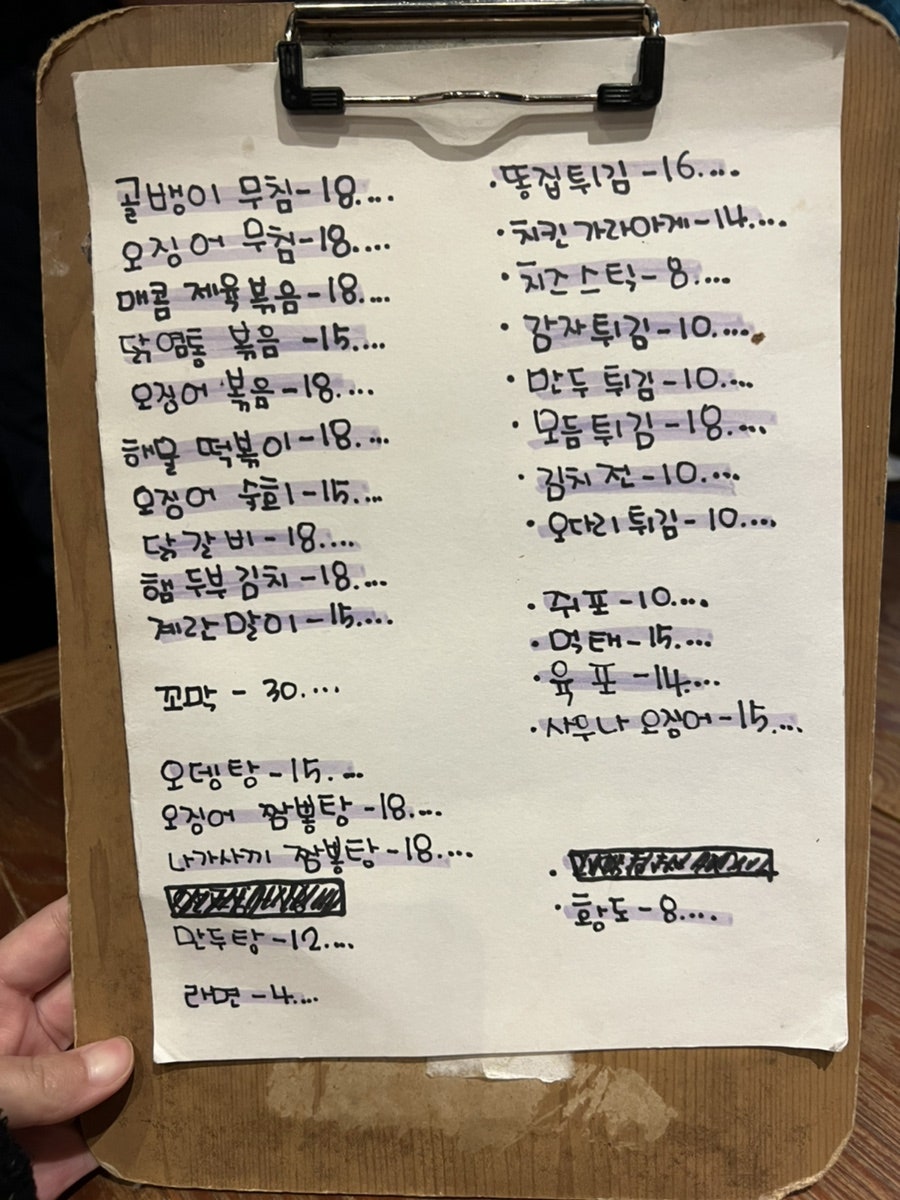 골뱅이 무침-18....
오징어 무침-18....
매콤 제육볶음-18....
닭염통 볶음 -15....
오징어 볶음-18....
해물 떡볶이-18....
오징어 숙회-15....
닭갈비-18....
햄 두부김치-18....
계란말이-15....
꼬막 - 30....
오뎅탕-15....
오징어 짬뽕탕-18....
나가사끼 짬뽕탕-18....
만두탕-12....
라면-4....
·똥집튀김-16....
·치킨가라아게-14....
·치즈스틱-8....
·감자튀김-10....
·만두튀김-10....
·모듬튀김-18....
·김치전-10....
·오다리튀김-10....
·쥐포-10....
·먹태-15....
·육포-14....
·사우나 오징어-15....
·황도-8....